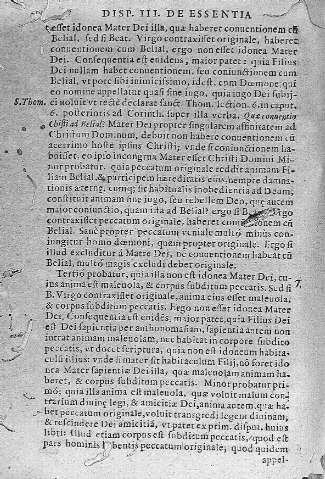 DISP. III. DE ESSENTIA
esset idonea Mater Dei illa, quæ haberet conuentionem cũ
Belial. sed si Beat. Virgo contraxisset originale, haberet
conuentionem cum Belial, ergo non esset idonea Mater
Dei. Consequentia est euidens, maior patet: quia Filius
Dei nullam habet conuentionem, seu coniunctionem cum
Belial, vt pote sibi inimicissimo, id est, cum Dæmone, qui
eo nomine appellatur quasi sine iugo, quia iugo Dei subijci
S. Thom.
noluit vt recte declarat sanct. Thom. lection. 6. in caput.
6. posterioris ad Corinth. super illa verba, Quæ conuentio
Christi ad Belial? Mater Dei propter singularem affinitatem ad
Christum Dominum, debuit non habere conuentionem cũ
acerrimo hoste ipsius Christi, vnde si coniunctionem ha-
buisset, eo ipso incongrua Mater esset Christi Domini Mi-
nor probatur. quia peccatum originale reddit animam Fi-
liam Belial, & participem hæreditatis eius, nempe damna-
tionis æternæ. cumq; sit habitualis inobedientia ad Deum,
constituit animam sine iugo, seu rebellem Deo, quæ autem
maior coniunctio, quam ista ad Belial? ergo si B. Virgo
contraxisset peccatum originale, haberet conuentionem cũ
Belial. Sanè propter peccatum veniale multò minus con-
iungitur homo dæmoni, quàm propter originale. Ergo si
illud excluditur à Matre Dei, ne conuentionem habeat cũ
Belial, multò magis excludi debet originale.
Tertio probatur, quia illa non est idonea Mater Dei, cu-
7.
ius anima est maleuola, & corpus subditum peccatis. Sed si
B. Virgo contraxisset originale, anima eius esset maleuola,
& corpus subditum peccatis. Ergo non esset idonea Mater
Dei, Consequentia est euidẽs, maior patet. quia Filius Dei
est Dei sapientia per anthonomasiam, sapientia autem non
intrat animam maleuolam, nec habitat in corpore subdito
peccatis, vt docet scriptura, quia non est idoneum habita-
culũ illius: vnde si mater sit habitaculum Filij, nõ foret ido
nea Mater sapientiæ Dei illa, quæ maleuolam animam ha-
beret, & corpus subditum peccatis. Minor probatur pri-
mò; quia illa anima est maleuola, quæ voluit malum con-
trarium diuinæ legi, & amicitiæ Dei, anima autem, quæ ha-
bet peccatum originale, voluit transgredi legem diuinam,
& rescindere Dei amicitiã, vt patet ex prim. disput. huius
libri: Illud etiam corpus est subditum peccatis, quod est
pars hominis habentis peccatum originale, quod quidem
appel-